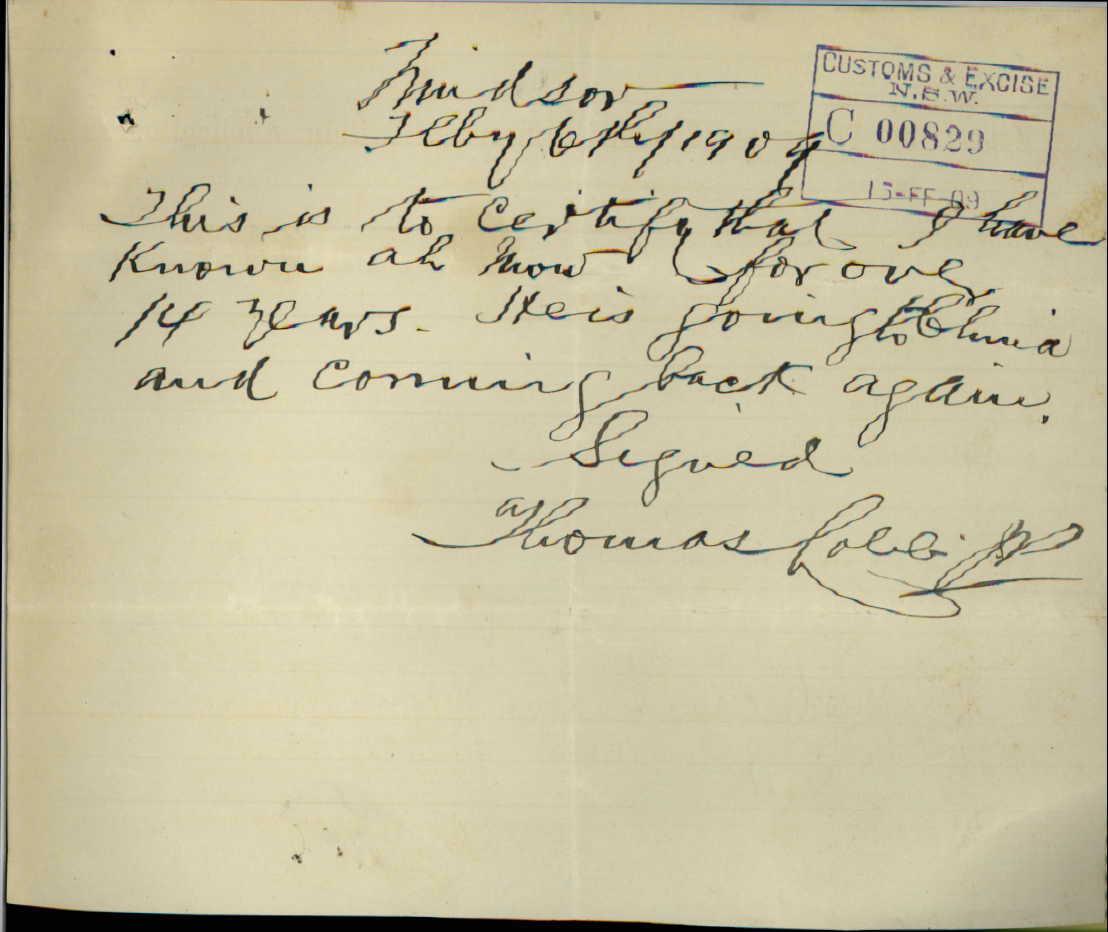 Windsor
CUSTOMS & EXCISE
N.S.W.
C 00829
15-FE-09
Feby 6th/1909
This is to certify that I have
Known ah Mow for over
14 Years. He is going to China
and Coming back again.
Signed
Thomas Cobb JP